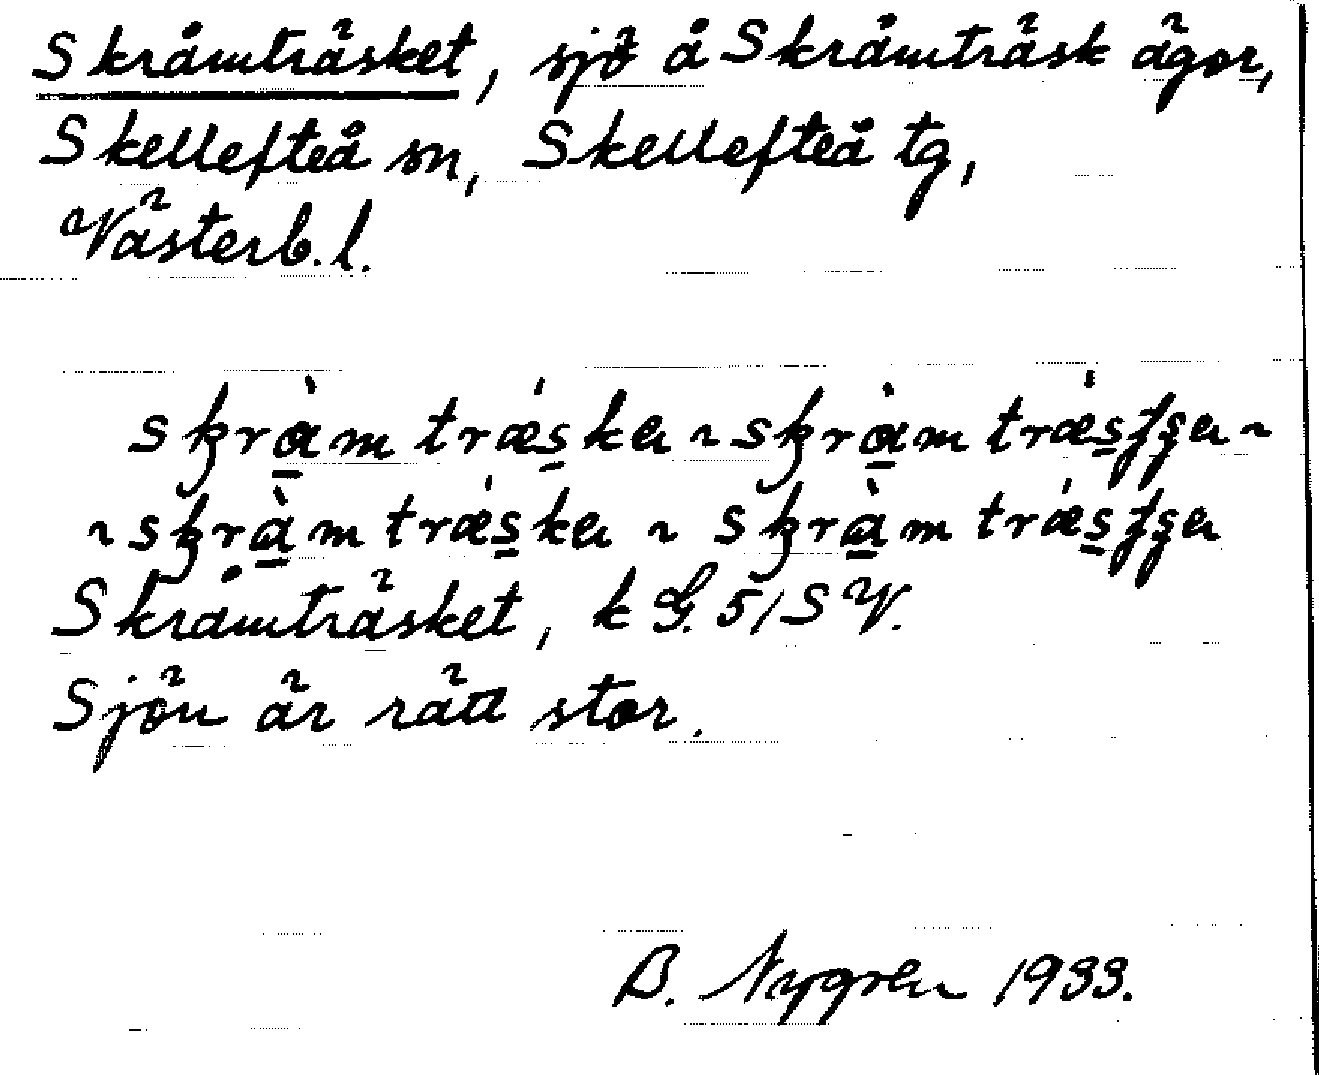 Skråmträsket, sjö å Skråmträsk ägor,
Skellefteå sn, Skellefteå tg,
Västerb. l.
skràm trǽska ~ skràm
~ skràm trǽska ~ skràm
Skråmträsket, k G. 5/SV.
Sjön är rätt stor.
B. Nygren 1933.